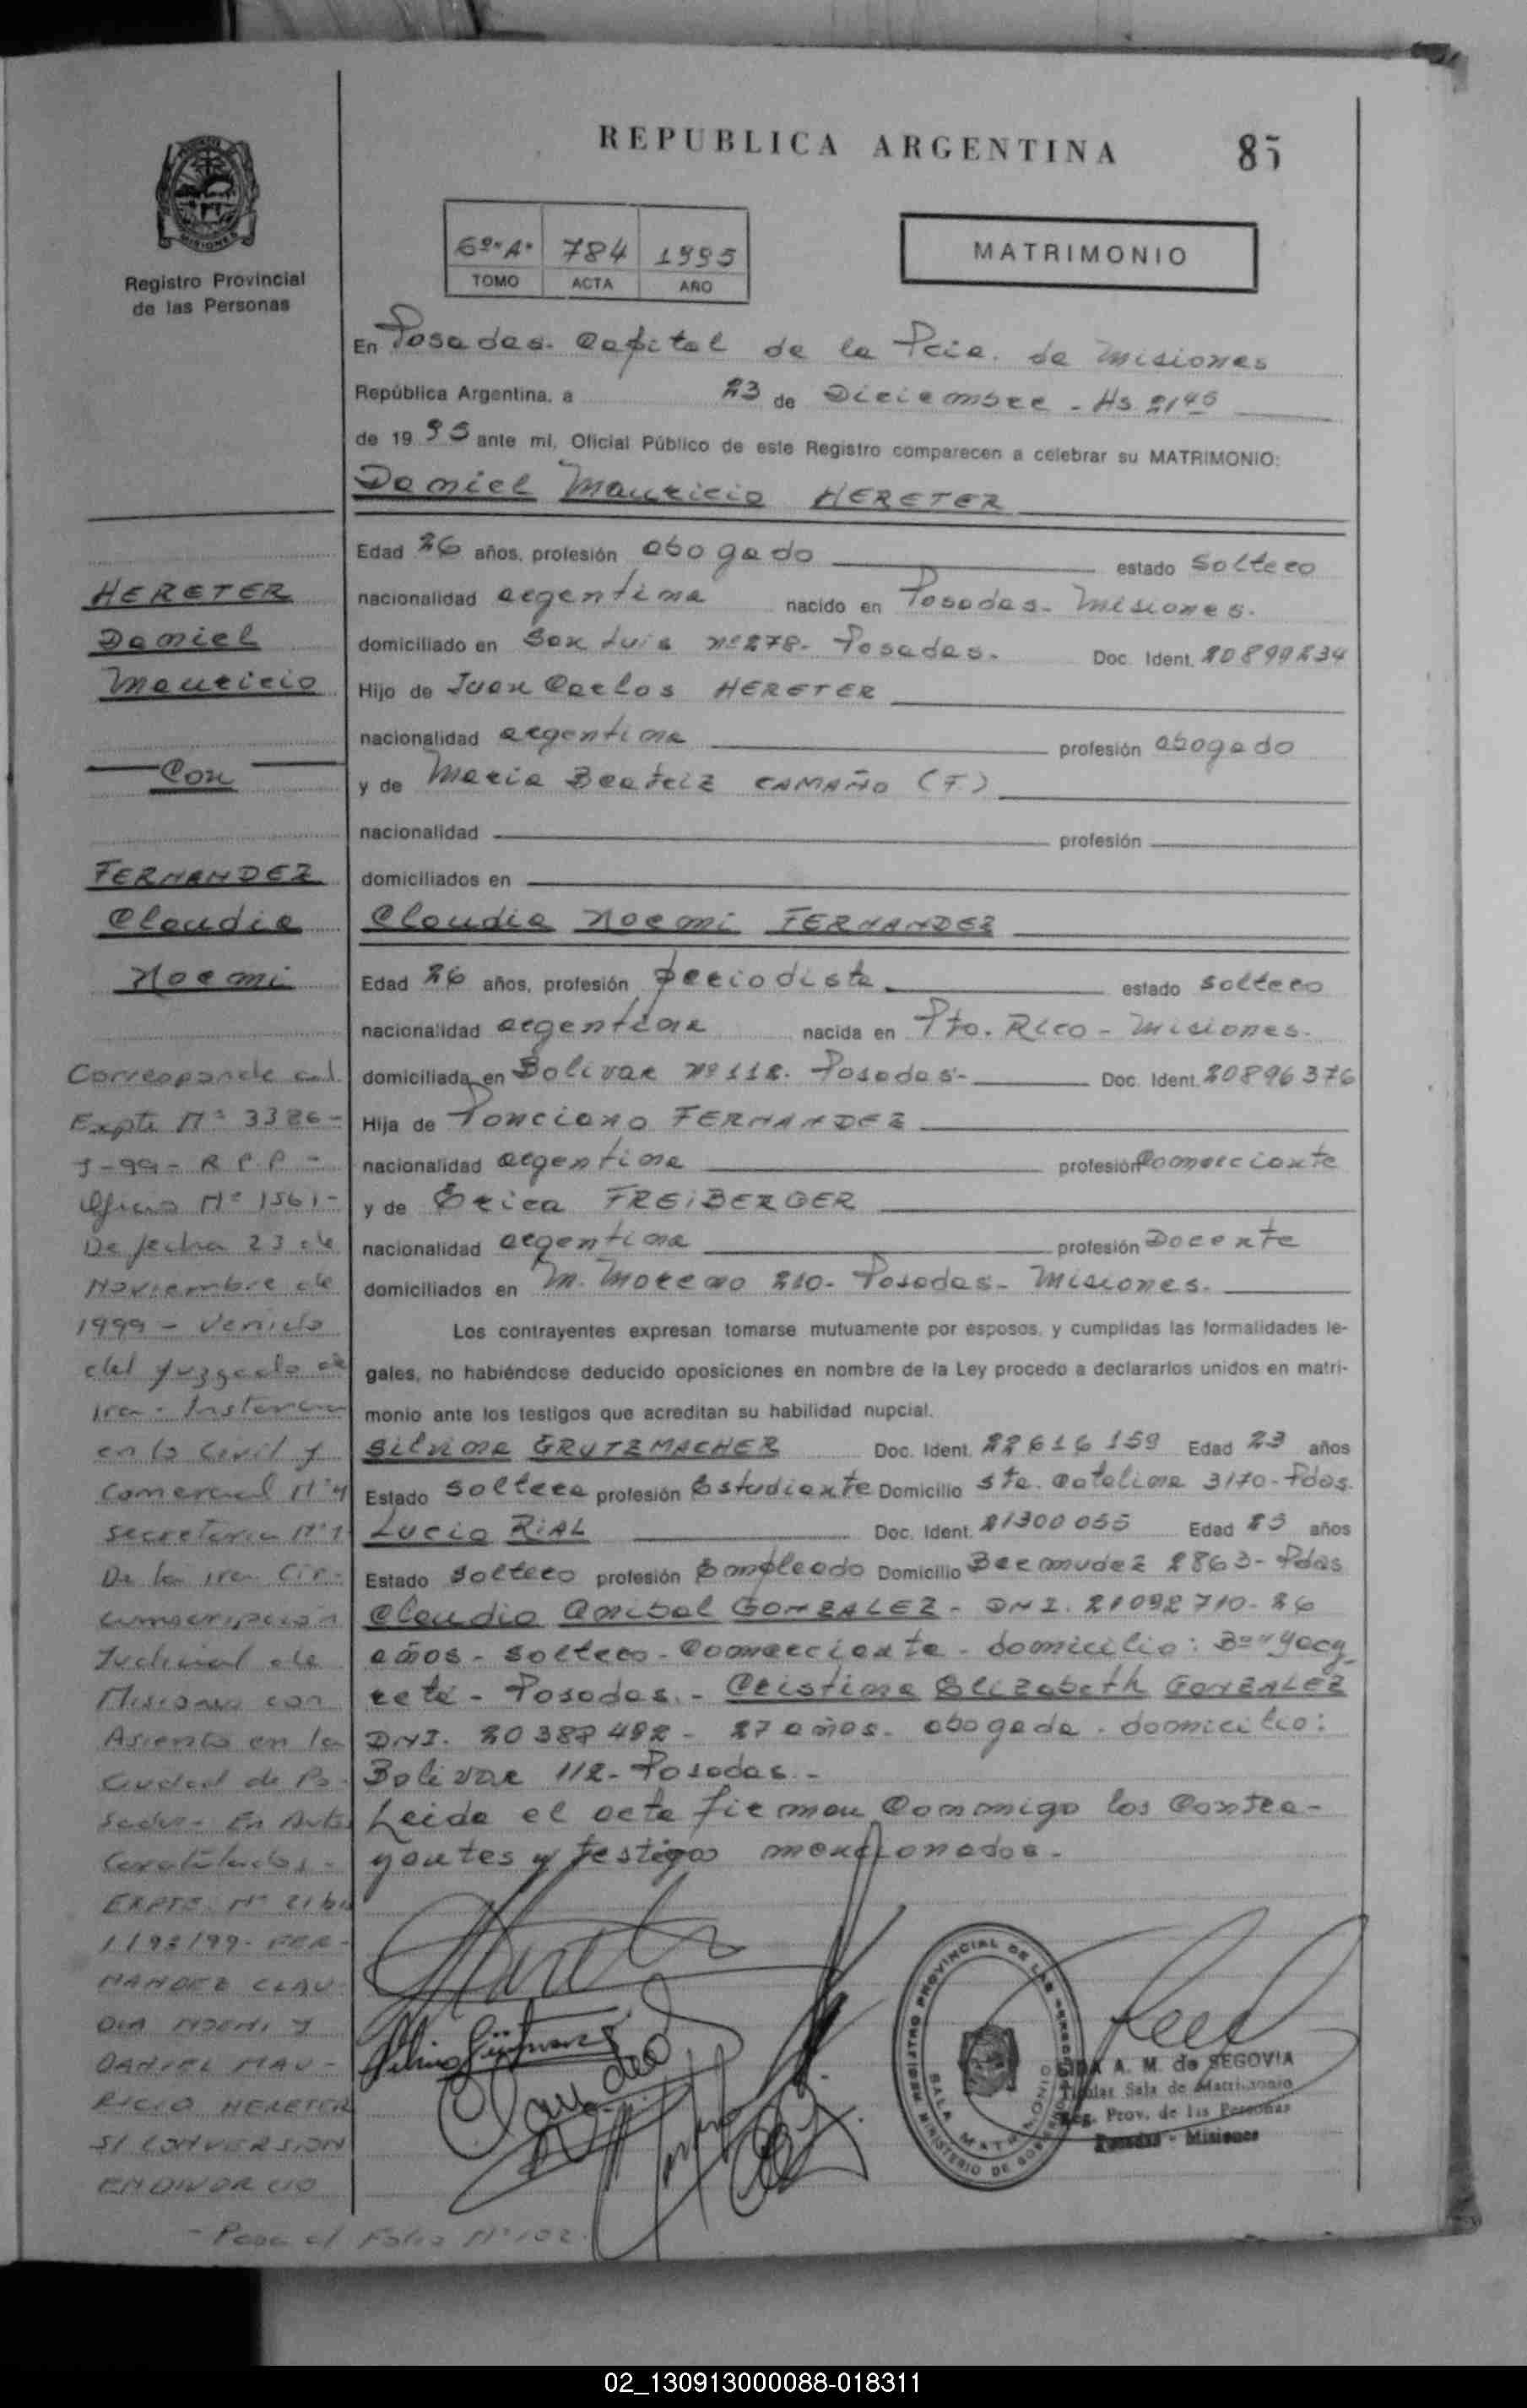 REPUBLICA ARGENTINA
85
MISIONES
Registro Provincial
de las Personas
6º "A" 784 1995
TOMO ACTA AÑO
MATRIMONIO
En Posadas. Capital de la Pcia. de Misiones
República Argentina, a 23 de Diciembre - Hs 21 45
de 19 95 ante mi, Oficial Público de este Registro comparecen a celebrar su MATRIMONIO:
Daniel Mauricio HERETER
Edad 26 años, profesión abogado estado soltero
nacionalidad argentina nacido en Posadas - Misiones.
domiciliado en San Luis nº 278 - Posadas - Doc. Ident. 20899234
Hijo de Juan Carlos HERETER
nacionalidad argentina profesión abogado
y de Maria Beatriz CAMAÑO (F)
nacionalidad profesión
domiciliados en
Claudia Noemi FERNANDEZ
Edad 26 años, profesión periodista estado soltero
nacionalidad argentina nacida en Pto. Rico - Misiones.
domiciliada en Bolivar nº 112. Posadas - Doc. Ident. 20896376
Hija de Ponciano FERNANDEZ
nacionalidad argentina profesión Comerciante
y de Erica FREIBERGER
nacionalidad argentina profesión Docente
domiciliados en M. Moreno 210 - Posadas - Misiones.
Los contrayentes expresan tomarse mutuamente por esposos, y cumplidas las formalidades le-
gales, no habiéndose deducido oposiciones en nombre de la Ley procedo a declararlos unidos en matri-
monio ante los testigos que acreditan su habilidad nupcial.
Silvina GRUTZMACHER Doc. Ident. 22616159 Edad 23 años
Estado soltera profesión Estudiante Domicilio Sta. Catalina 3170 - Pdas.
Lucio RIAL Doc. Ident. 21300055 Edad 25 años
Estado soltero profesión Empleado Domicilio Bermudez 2863 - Pdas
Claudio Anibal GONZALEZ - DNI. 21092710 - 26
años - soltero - Comerciante - domicilio: Bº "Yacy
reta - Posadas. - Cristina Elizabeth GONZALEZ
DNI. 20387492 - 27 años - abogada - domicilio:
Bolivar 112 - Posadas. -
Leida el acta firman Conmigo los Contra-
yentes y testigos mencionados -
HERETER
Daniel
Mauricio
Con
FERNANDEZ
Claudia
Noemi
Corresponde al
Expte Nº 3386 -
J-99 - R P P -
Oficio Nº 1561 -
De fecha 23 de
Noviembre de
1999 - Venido
del Juzgado de
1ra - Instancia
en lo Civil y
Comercial Nº 4
Secretaria Nº 1
De la 1ra Cir-
cunscripción
Judicial de
Misiones con
Asiento en la
Ciudad de Po-
sadas - En Autos
Caratulados -
EXPTE. Nº
FER-
NANDEZ CLAU-
DIA NOEMI Y
DANIEL MAU-
RICIO HERETER
S/ CONVERSION
EN DIVORCIO
- Pasa al Folio Nº 102
REGISTRO PROVINCIAL DE LAS PERSONAS
SALA MATRIMONIO
MINISTERIO DE GOBIERNO
A. M. de SEGOVIA
Titular Sala de Matrimonio
Reg. Prov. de las Personas
Posadas - Misiones
02_130913000088-018311